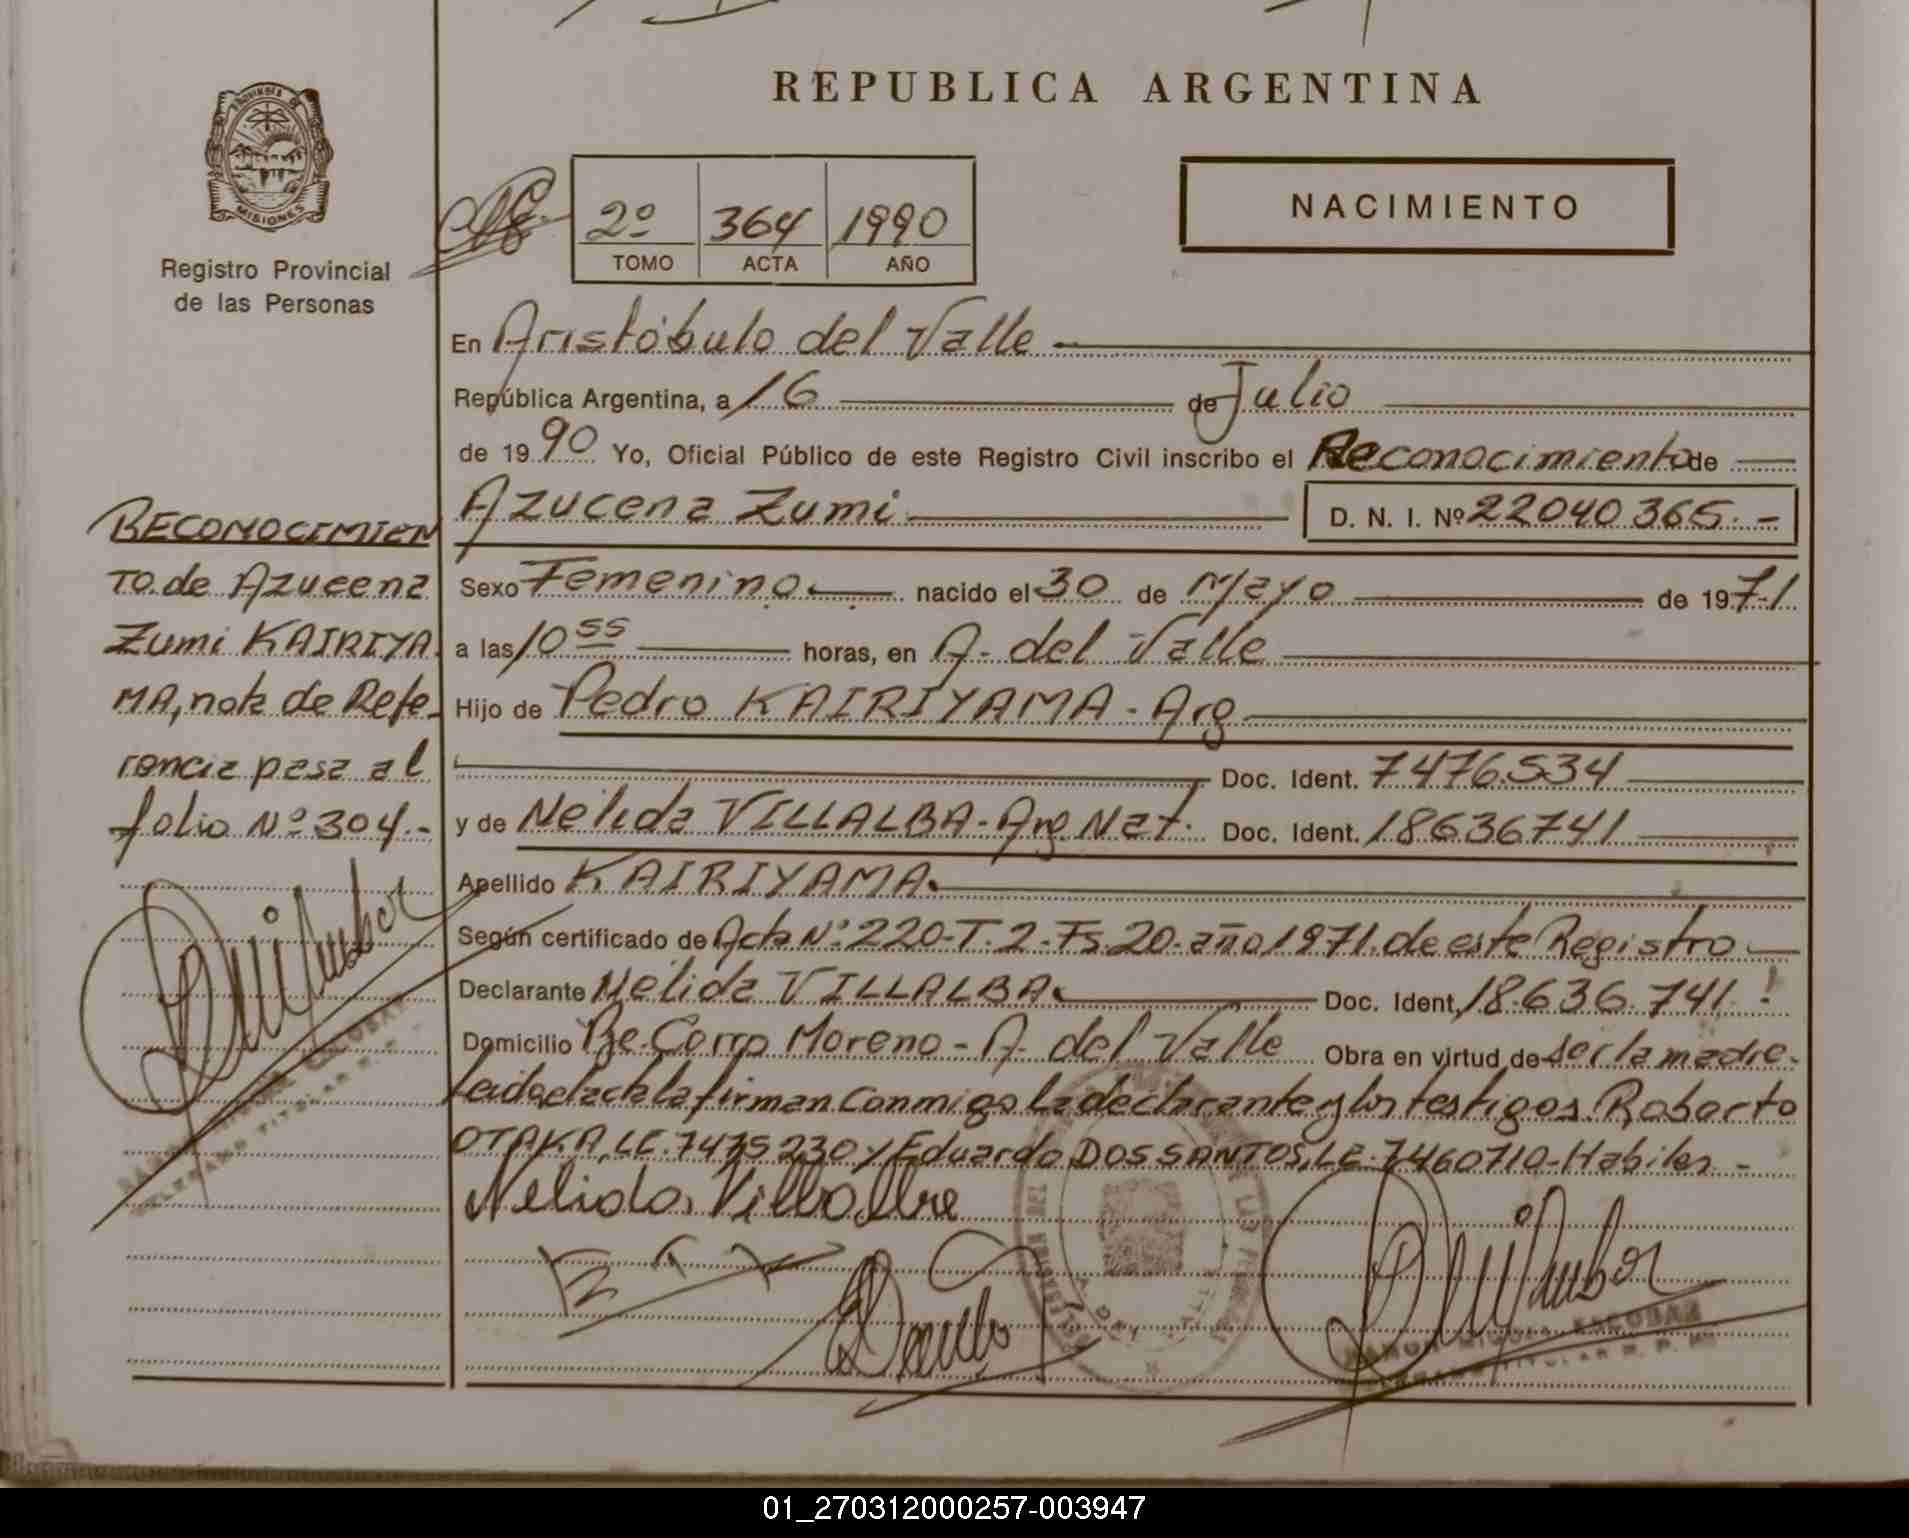 REPUBLICA ARGENTINA
PROVINCIA DE
MISIONES
Registro Provincial
de las Personas
2º 364 1990
TOMO ACTA AÑO
NACIMIENTO
En Aristóbulo del Valle
República Argentina, a 16 de Julio
de 1990 Yo, Oficial Público de este Registro Civil inscribo el Reconocimiento de
Azucena Zumi D. N. I. Nº 22040365.-
Sexo Femenino nacido el 30 de Mayo de 1971
a las 10 55 horas, en A. del Valle
Hijo de Pedro KAIRIYAMA - Arg
Doc. Ident. 7476.534
y de Nélida VILLALBA - Arg. Nat. Doc. Ident. 18636741
Apellido KAIRIYAMA.
Según certificado de Acta Nº 220-T.2-Fs.20-año 1971. de este Registro
Declarante Nélida VILLALBA. Doc. Ident. 18.636.741.
Domicilio Be. Corro Moreno - A. del Valle Obra en virtud de ser la madre.
Leida el acta la firman conmigo la declarante y los testigos Roberto
OTAKA, LE. 7475230 y Eduardo DOS SANTOS, LE. 7460710 - Habiles -
Nelida Villalba
RECONOCIMIEN
TO. de Azucena
Zumi KAIRIYA
MA, nota de Refe-
rencia pasa al
folio Nº 304.-
RAMON MIGUEL ESCOBAR
01_270312000257-003947